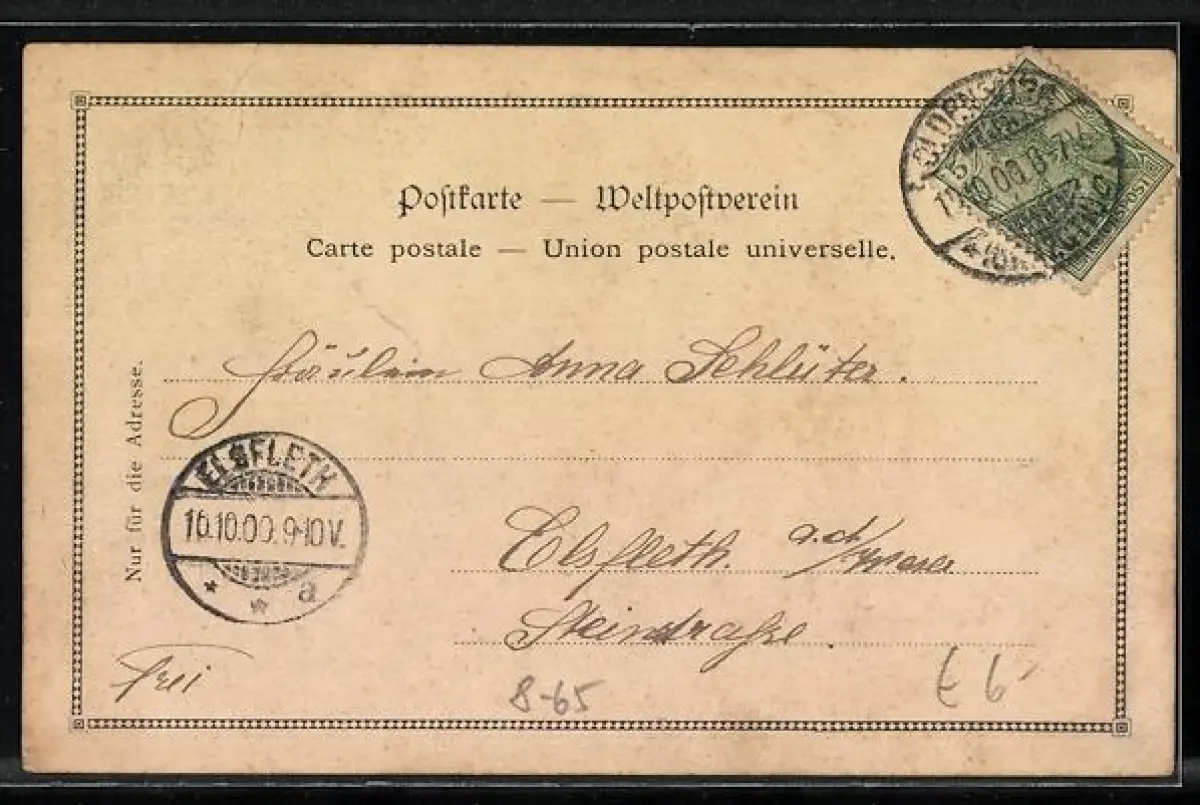 Postkarte — Weltpostverein
Carte postale — Union postale universelle.
Nur für die Adresse.
Fräulein Anna Schlüter.
Elsfleth. a. d/Weser
Steinstraße.
Frei
ELSFLETH
16.10.00. 9-10 V.
* * a
8-65
€ 6
5